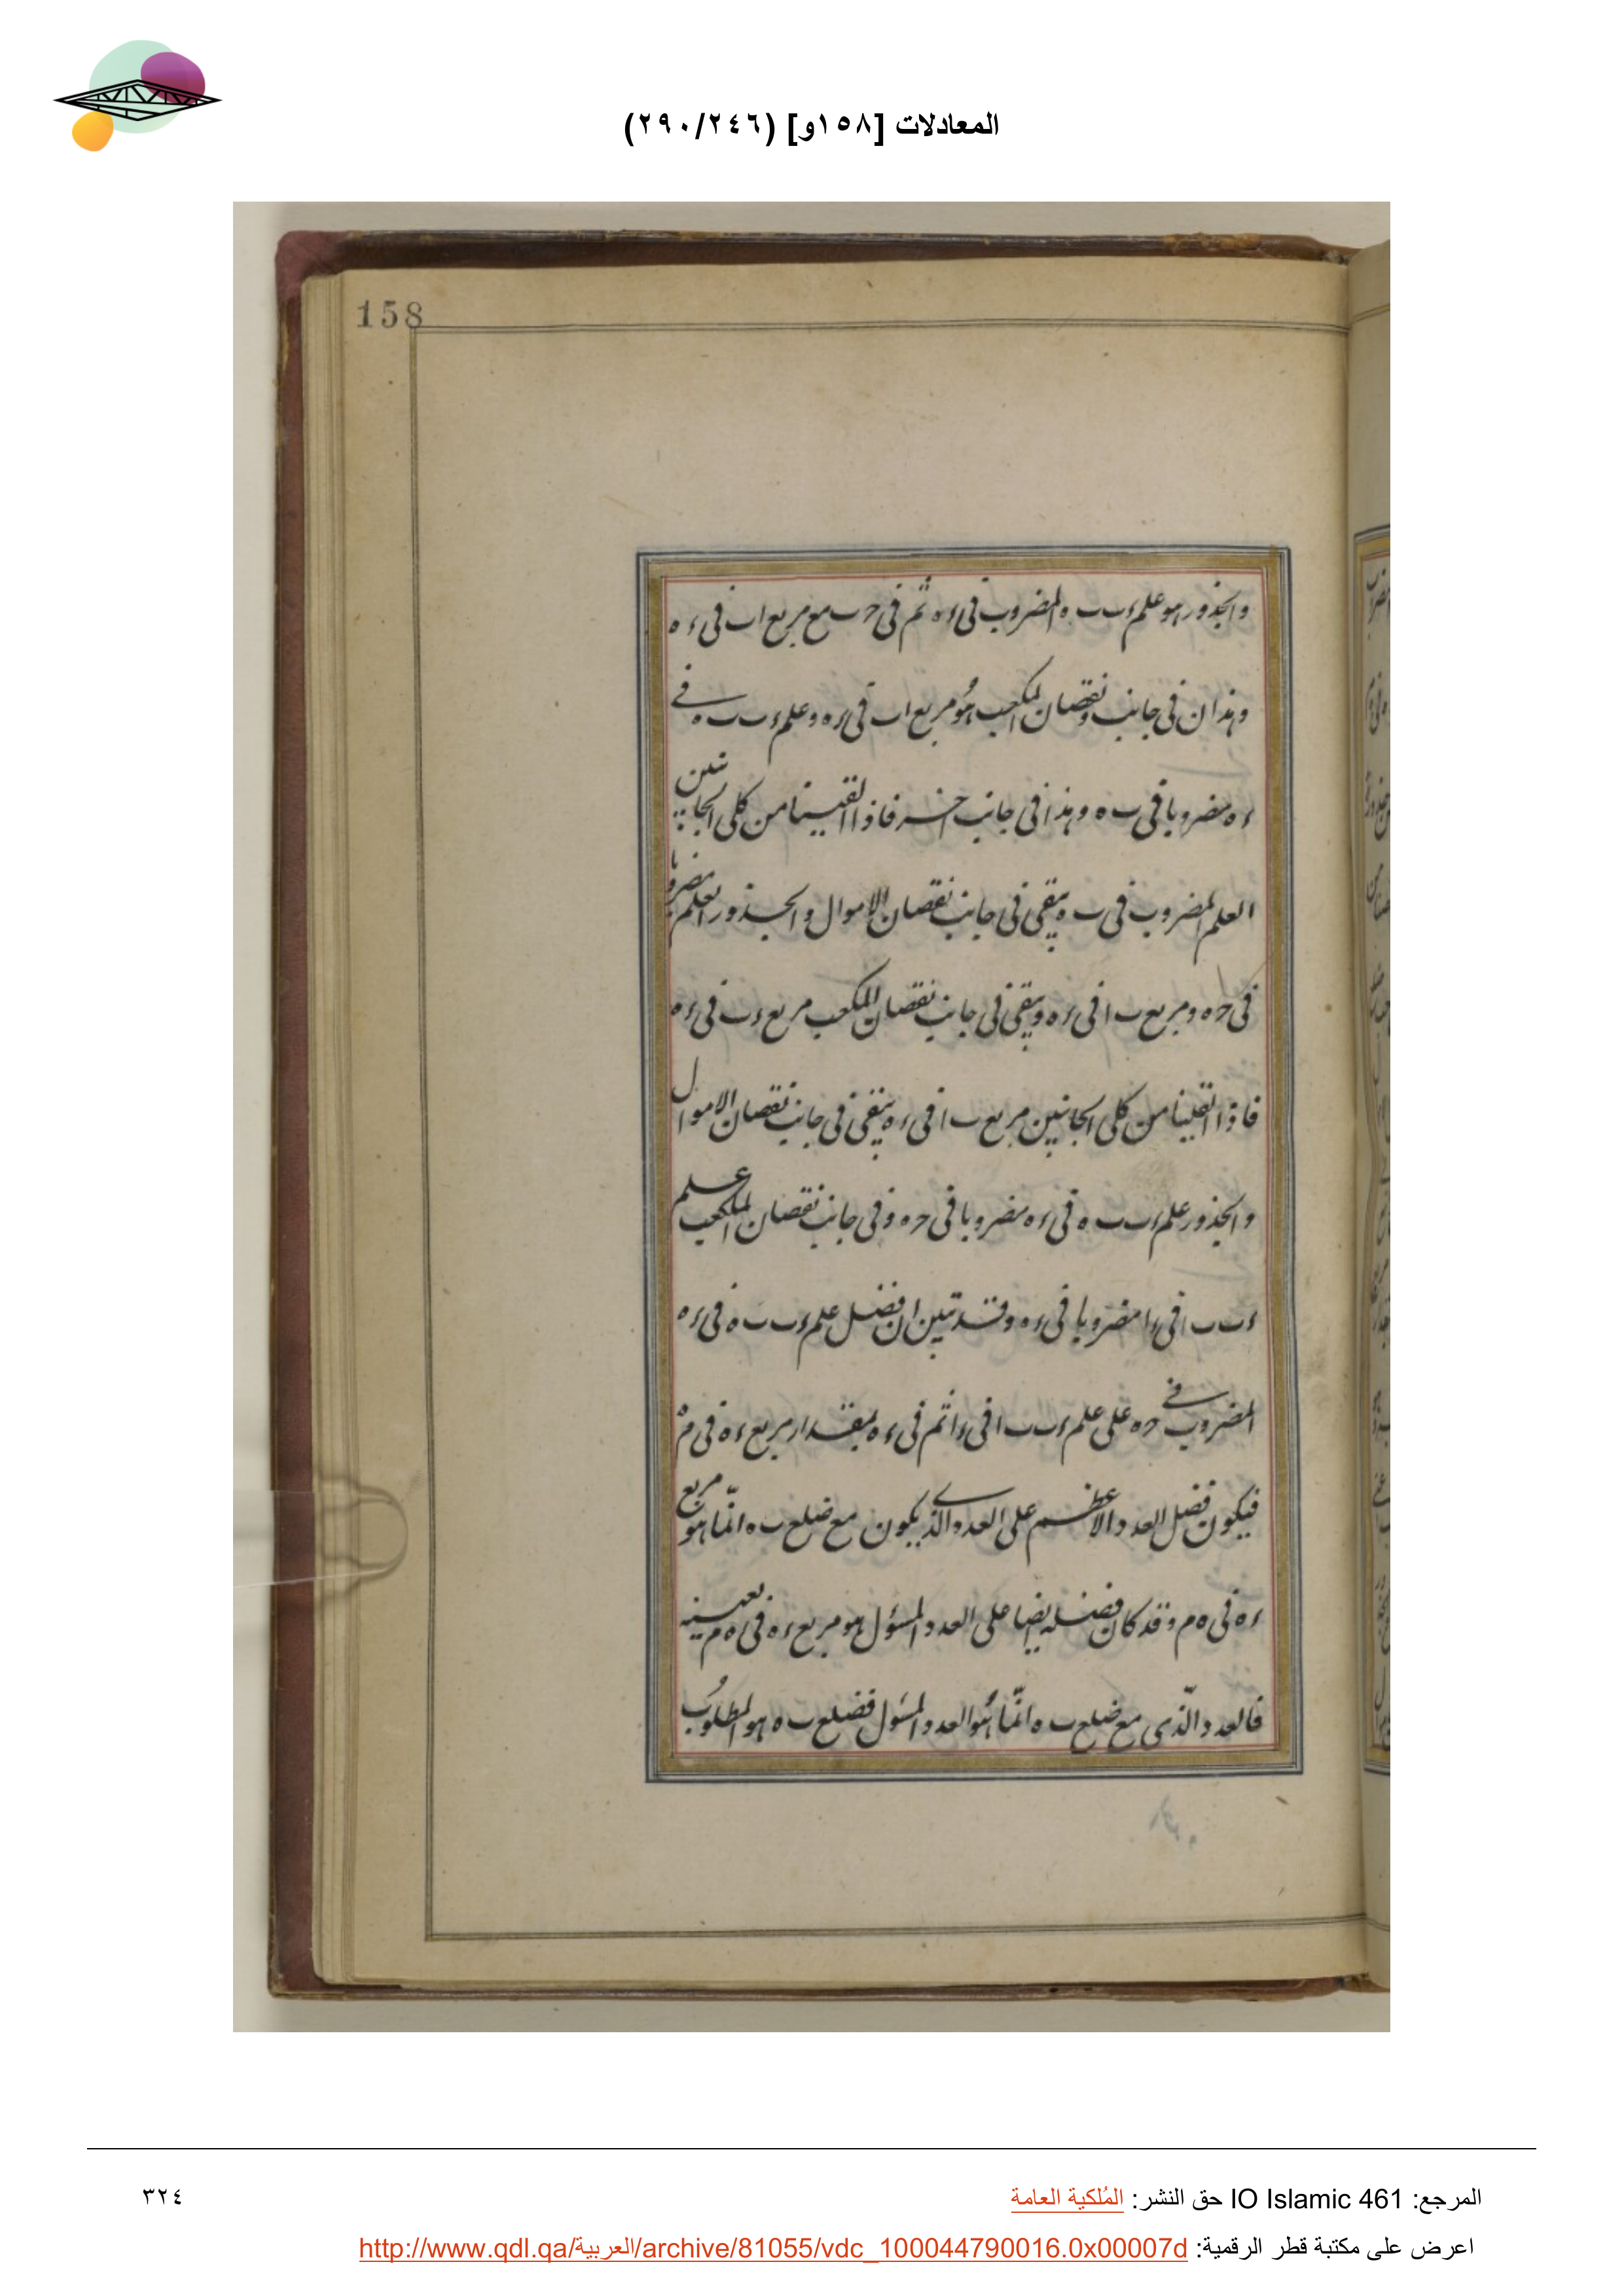 المعادلات [١٥٨و] (٢٤٦/٢٩٠)
158
والجذور هو علم ء ب ب ه المضروب فى ء ه ثم فى ح ب مع مربع ا ب فى ء ه
وهذان فى جانب ونقصان المكعب هو مربع ا ب فى ء ه وعلم ء ب ب ه فے
ء ه مضروبا فى ب ه وهذا فى جانب اخر فاذا القينا من كلى الجانبين
العلم المضروب فى ب ه يبقى فى جانب نقصان الاموال والجذور العلم مضروبا
فى ح ه ومربع ب ا فى ء ه ويبقى فى جانب نقصان المكعب مربع ء ب فى ء ه
فاذا القينا من كلى الجانبين مربع ب ا فى ء ه يبقى فى جانب نقصان الاموال
والجذور علم ء ب ب ه فى ء ه مضروبا فى ح ه وفى جانب نقصان المكعب علم
ء ب ب ا فى ء ا مضروبا فى ء ه وقد تبين ان فضل علم ء ب ب ه فى ء ه
المضروب فے ح ه على علم ء ب ب ا فى ء ا ثم فى ء ه بمقدار مربع ء ه فى م ه
فيكون فضل العدد الاعظم على العدد الذے يكون مع ضلع ب ه انّما هو مربع
ء ه فى ه م وقد كان فضله ايضا على العدد المسؤل هو مربع ء ه فى ه م بعينه
فالعدد الّذى مع ضلع ب ه انّما هُو العدد المسئول فضلع ب ه هو المطلوب
المرجع: IO Islamic 461 حق النشر: المُلكية العامة
٣٢٤
اعرض على مكتبة قطر الرقمية: http://www.qdl.qa/العربية/archive/81055/vdc_100044790016.0x00007d